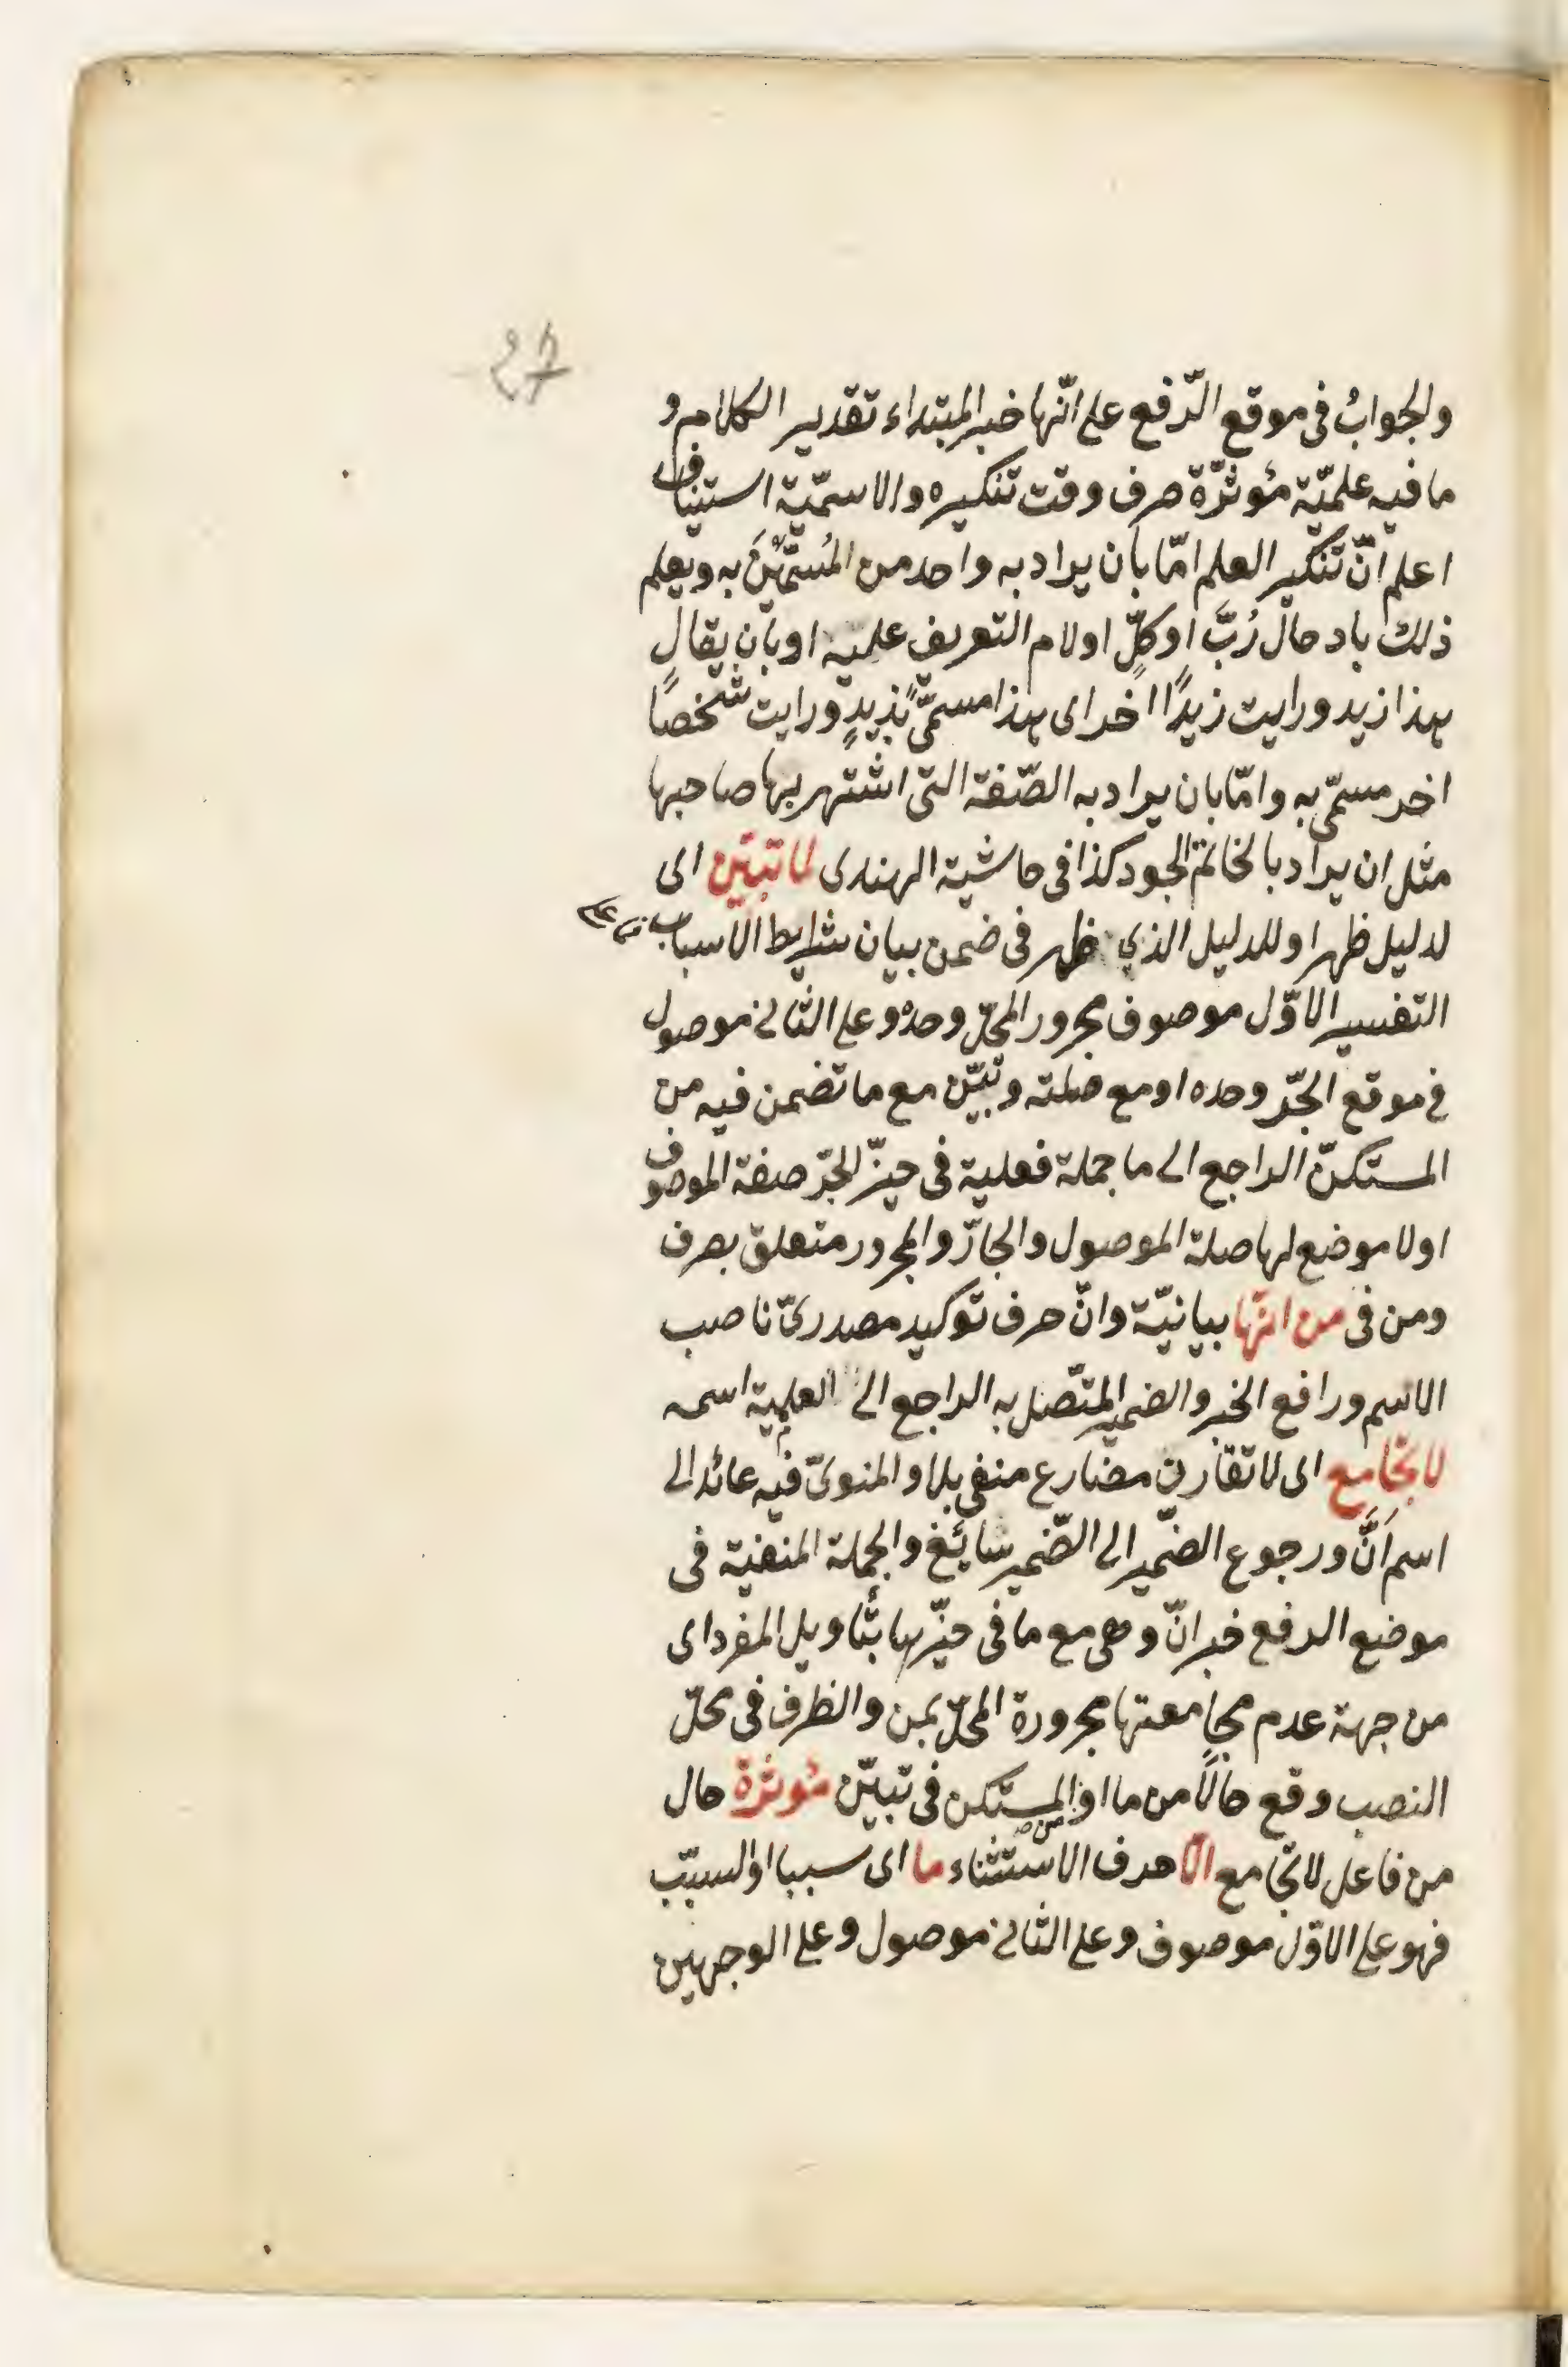 27
والجوابُ فى موقع الرّفع على انّها خبر المبتداء تقدير الكلام و
ما فيه علميّة مُوثرّة صرف وقت تنكيره والاسميّة استيناف
اعلم انّ تنكير العلم امّا بان يراد به واحد من المُسمَّيْنَ به ويعلم
ذلك بادحال رُبَّ او كلٍّ او لام التعريف عليه او بان يقال
هذا زيد ورايت زيدًا اخر اى هذا مسمّىً بزيدٍ ورايت شخصًا
اخر مسمّى به وامّا بان يراد به الصّفة التى اشتهر بها صاحبها
مثل ان يراد بالخاتم الجود كذا فى حاشية الهندى لما تبيّن اى
لدليل ظهر او للدليل الذي ظهر فى ضمن بيان شرايط الاسباب على
التفسير الاوّل موصوف مجرور المحلّ وحدهُ وعلى الثانى موصول
فى موقع الجّر وحده او مع صلته وتبيّن مع ما تضمن فيه من
المستكنّ الراجع الى ما جملة فعلية فى حيزّ الجّر صفة الموصوف
او لا موضع لها صلة الموصول والجارّ والمجرور متعلق بصرف
ومن فى من انّها بيانيّة وانّ حرف توكيد مصدرىّ ناصب
الاسم ورافع الخبر والضمير المتّصل به الراجع الى العلمية اسمه
لا تجامع اى لا تقارن مضارع منفى بلا والمنوىّ فيه عائد الى
اسم اَنَّ ورجوع الضّمير الى الضّمير سائغ والجملة المنفية فى
موضع الرفع خبر انّ وهى مع ما فى حيزّها بتأويل المفرد اى
من جهة عدم مجامعتها مجرورة المحلّ بمن والظرف فى محلّ
النصب وقع حالًا من ما او المستكن فى تبيّن مُوثرة حال
من فاعل لا تجامع الّا حرف الاستثناء ما اى سببا او السبب
فهو على الاوّل موصوف وعلى الثانى موصول وعلى الوجهين